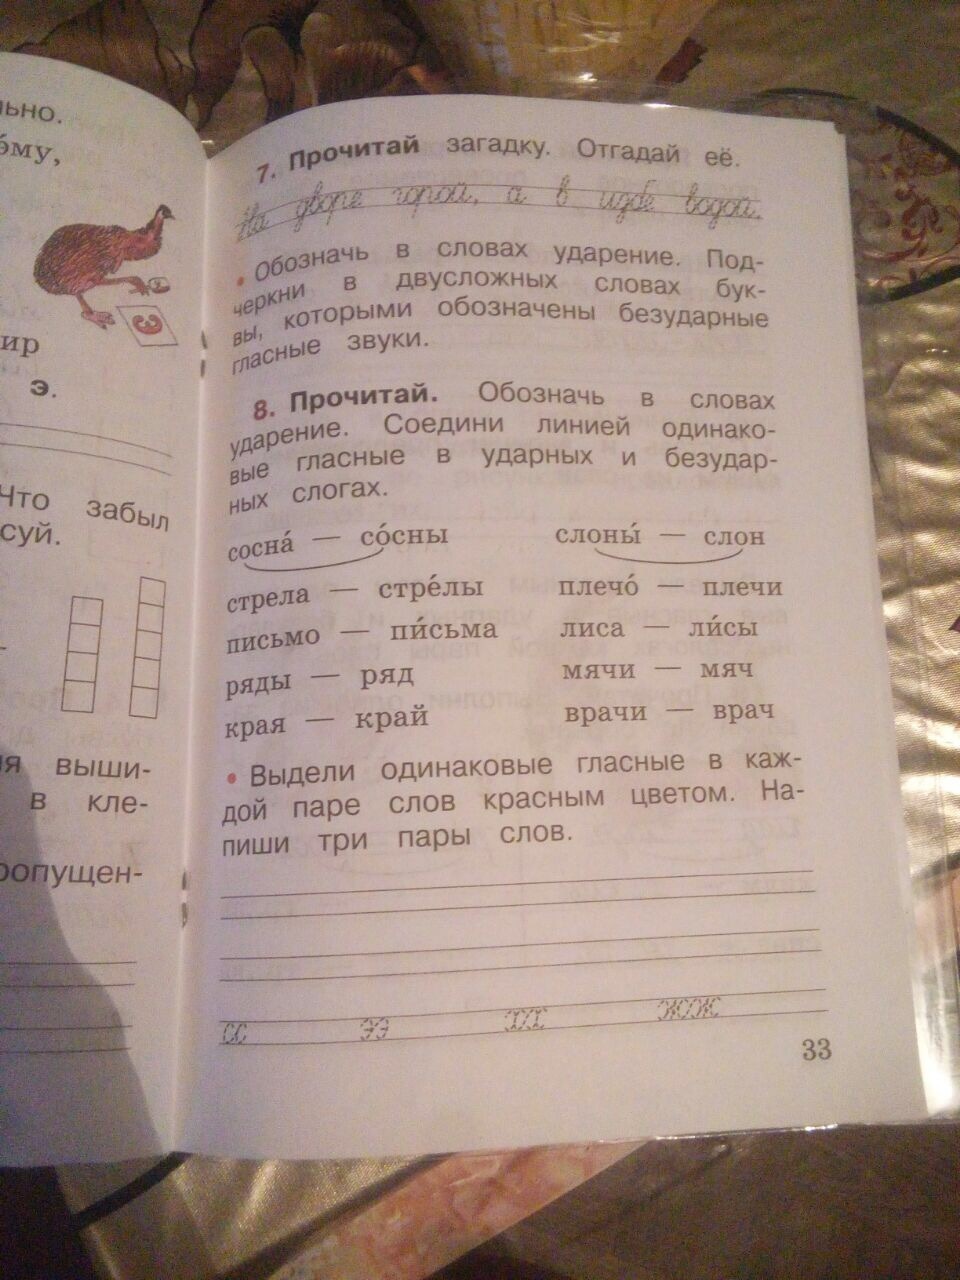 льно.
о́му,
ир
э.
Что забыл
суй.
ия выши-
в кле-
ропущен-
7. Прочитай загадку. Отгадай её.
На дворе горой, а в избе водой.
• Обозначь в словах ударение. Под-
черкни в двусложных словах бук-
вы, которыми обозначены безударные
гласные звуки.
8. Прочитай. Обозначь в словах
ударение. Соедини линией одинако-
вые гласные в ударных и безудар-
ных слогах.
сосна́ — со́сны слоны́ — слон
стрела — стре́лы плечо́ — плечи
письмо — пи́сьма лиса — ли́сы
ряды — ряд мячи — мяч
края — край врачи — врач
• Выдели одинаковые гласные в каж-
дой паре слов красным цветом. На-
пиши три пары слов.
сс ээ хх жж
33